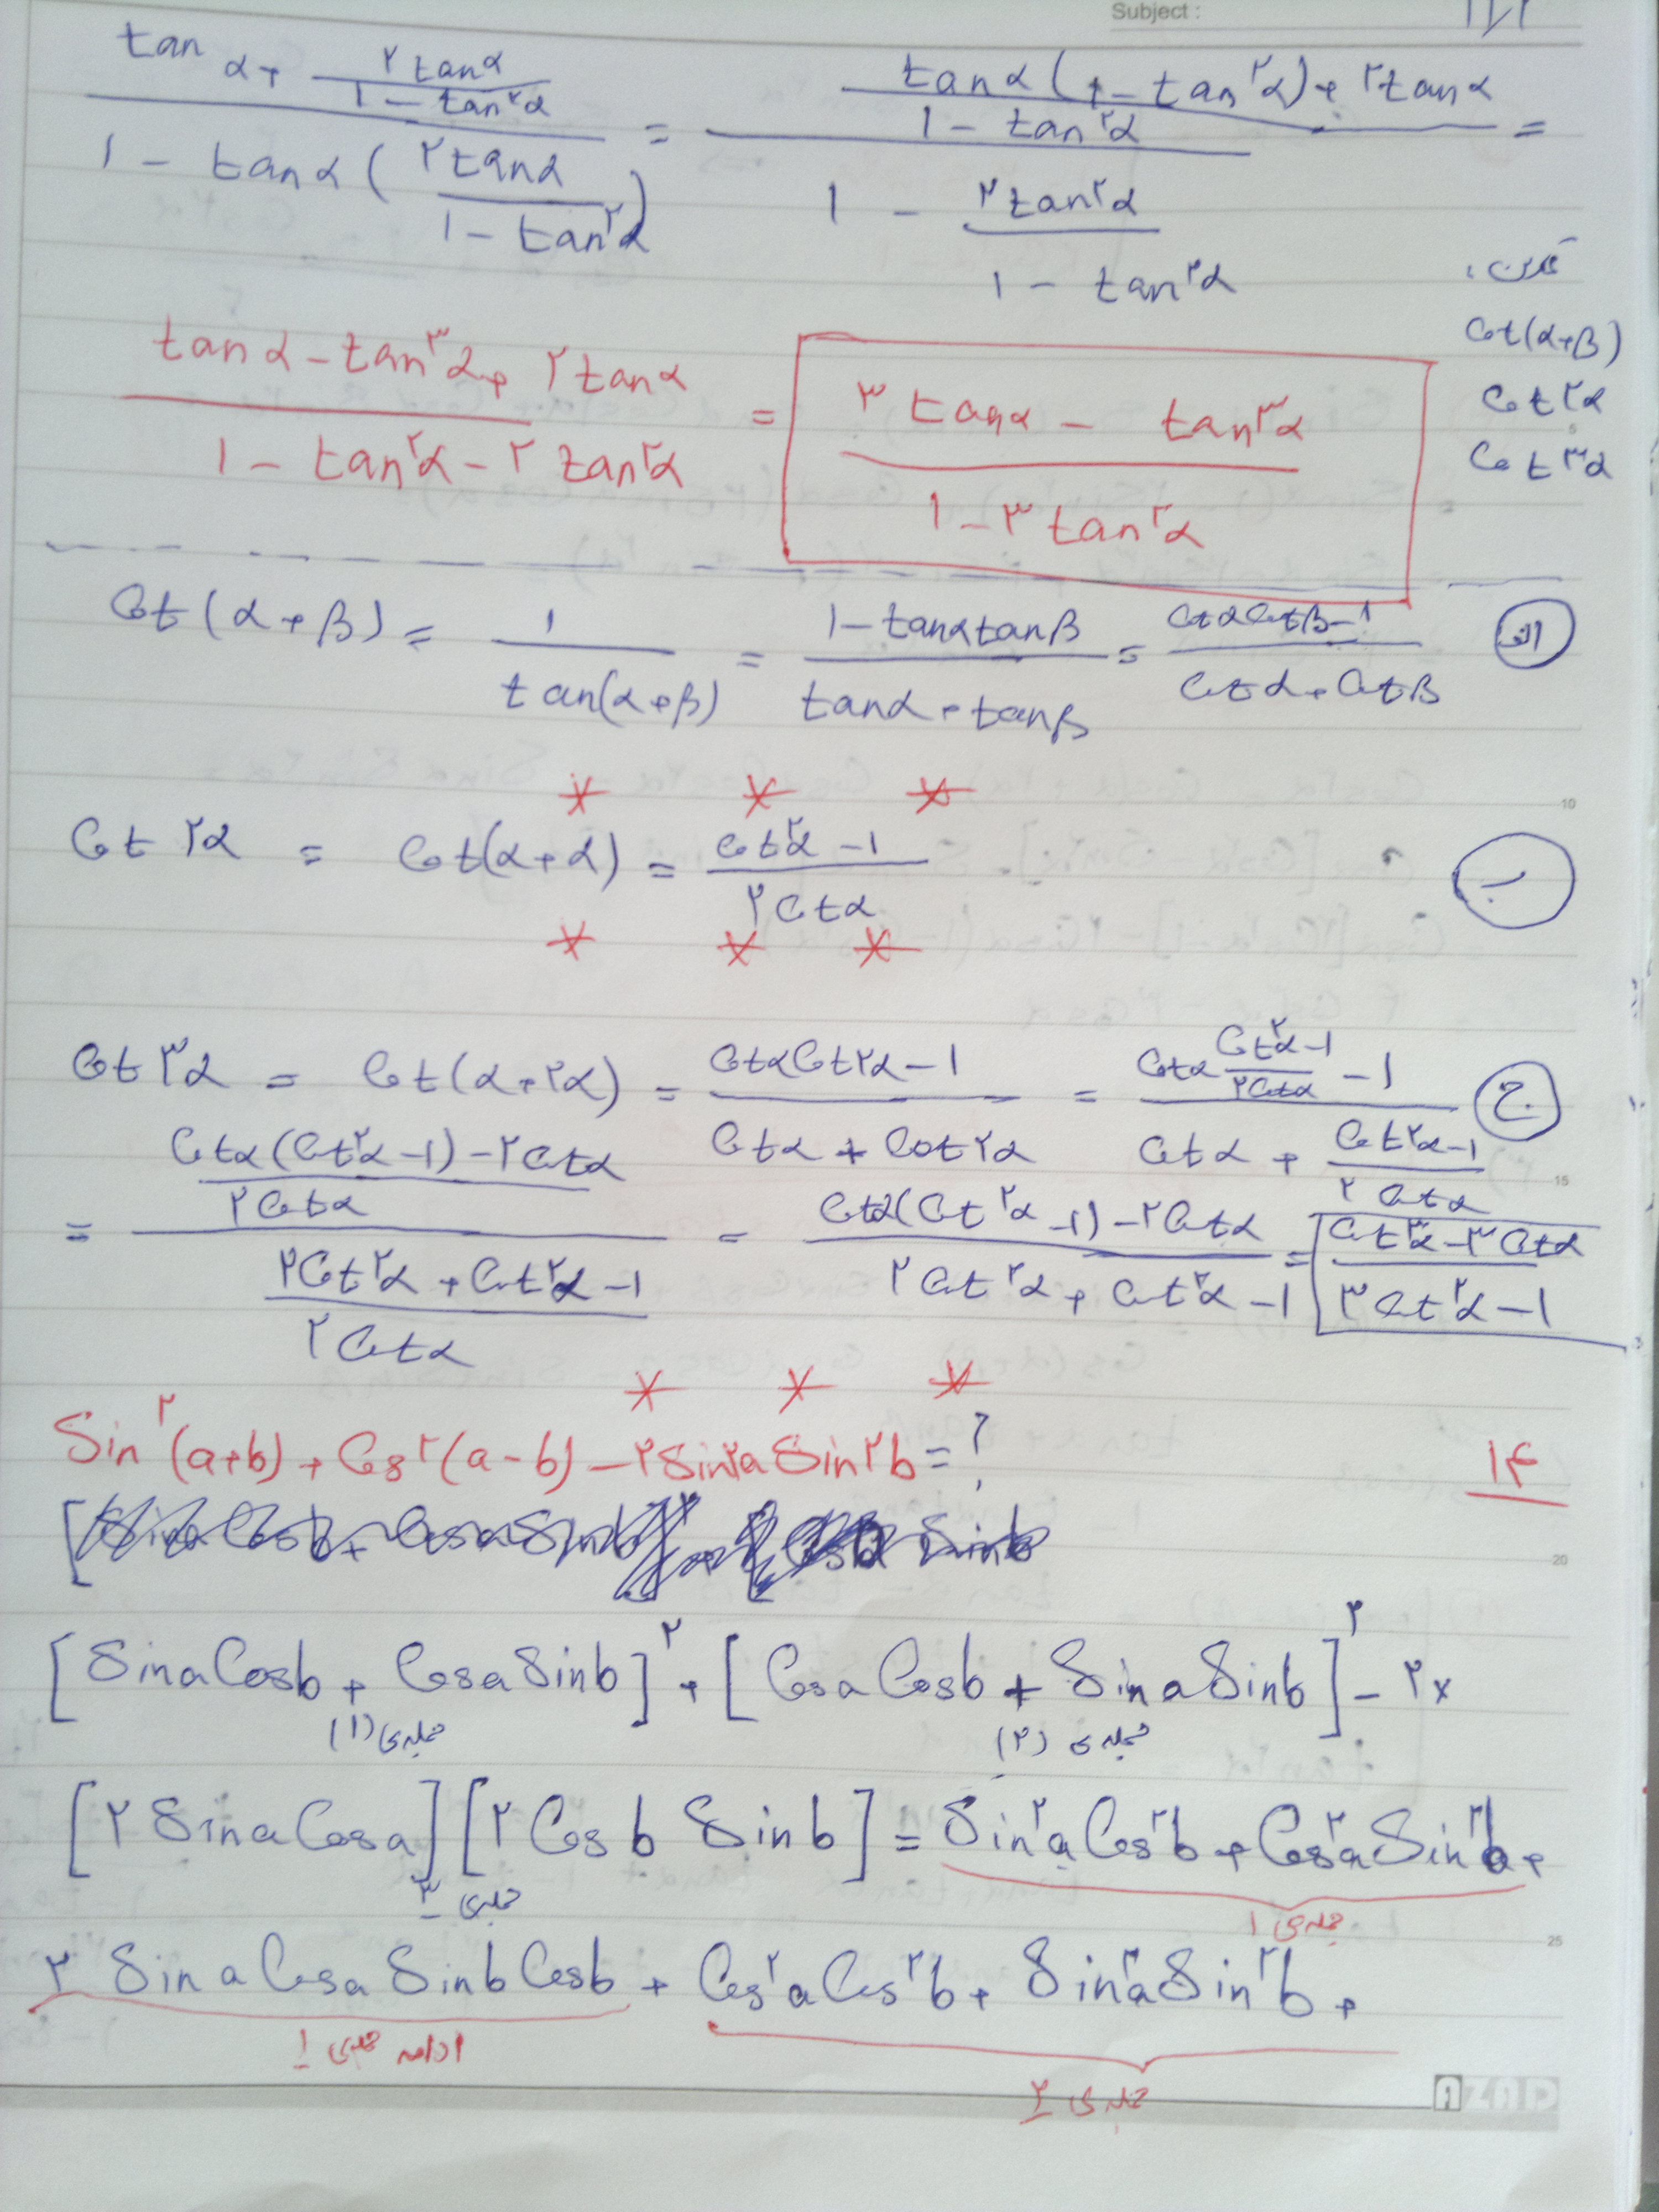 Subject :
tan α + ۲tanα / ۱ − tan²α / ۱ − tanα ( ۲tanα / ۱ − tan²α ) = tanα (۱ − tan²α) + ۲tanα / ۱ − tan²α / ۱ − ۲tan²α / ۱ − tan²α =
تمرین:
Cot(α+β)
Cot ۲α
Cot ۳α
tanα − tan³α + ۲tanα / ۱ − tan²α − ۲tan²α = ۳tanα − tan³α / ۱ − ۳tan²α
Cot (α + β) = ۱ / tan(α+β) = ۱ − tanα tanβ / tanα + tanβ = Cotα Cotβ − ۱ / Cotα + Cotβ الف
* * *
Cot ۲α = Cot(α+α) = Cot²α − ۱ / ۲Cotα ب
* * *
Cot ۳α = Cot(α+۲α) = Cotα Cot۲α − ۱ / Cotα + Cot۲α = Cotα Cot²α−۱ / ۲Cotα − ۱ / Cotα + Cot²α−۱ / ۲Cotα ج
= Cotα(Cot²α −۱) − ۲Cotα / ۲Cotα / ۲Cot²α + Cot²α − ۱ / ۲Cotα = Cotα(Cot²α −۱) − ۲Cotα / ۲Cot²α + Cot²α − ۱ = Cot³α − ۳Cotα / ۳Cot²α − ۱
* * *
Sin²(a+b) + Cos²(a−b) − ۲Sin۲a Sin۲b = ? ۱۴
[Sina Cosb + Cosa Sinb]² + [Cosa Cosb + Sina Sinb]² − ۲×
جمله‌ی (۱) جمله‌ی (۲)
[۲ Sina Cosa] [۲ Cos b Sin b] = Sin²a Cos²b + Cos²a Sin²b +
جمله‌ی ۳ جمله‌ی ۱
۲ Sin a Cosa Sinb Cosb + Cos²a Cos²b + Sin²a Sin²b +
ادامه جمله‌ی ۱ جمله‌ی ۲
10
15
20
25
AZAD